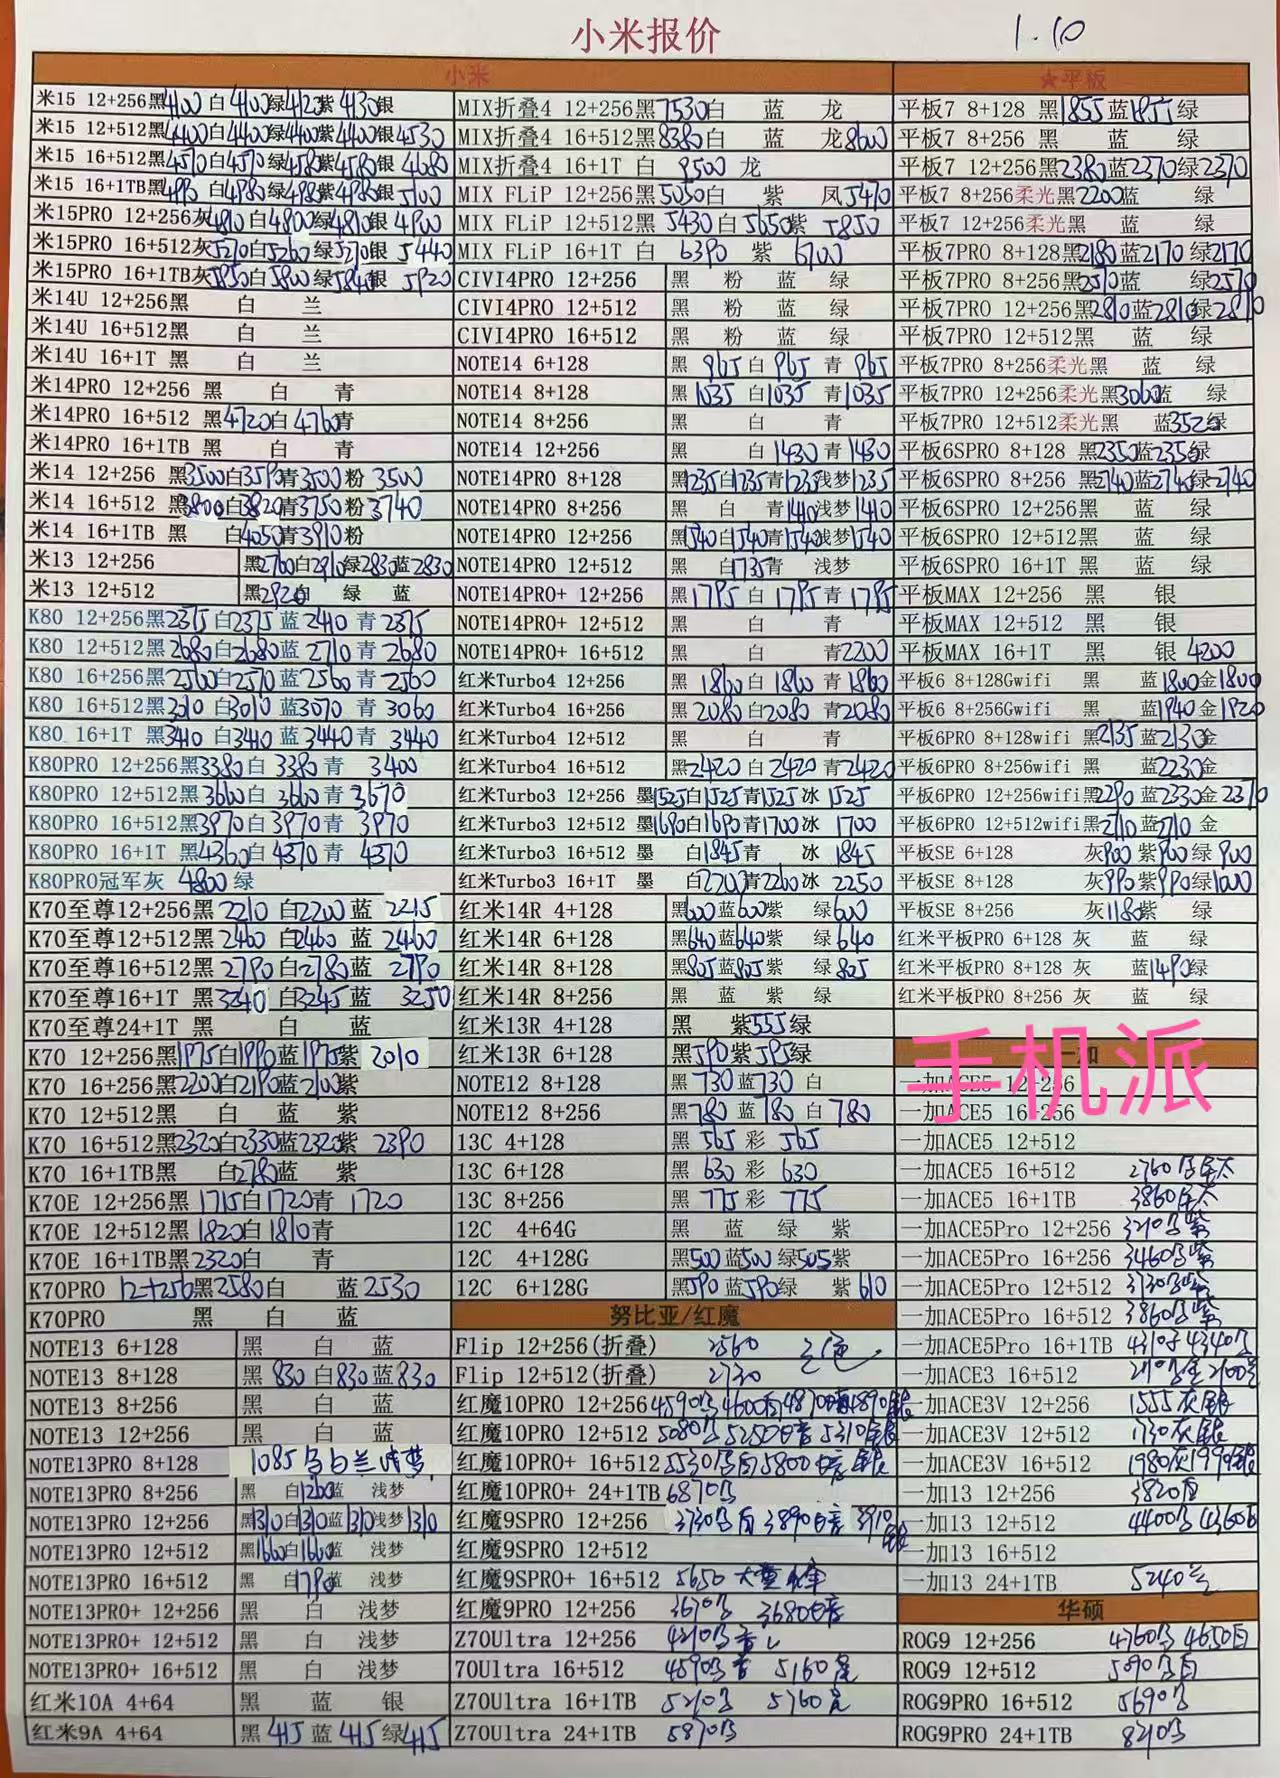 小米报价
1.10
小米
★平板
米15 12+256黑4100 白4100绿4120紫4130银
米15 12+512黑4400白4400绿4400紫4400银4530
米15 16+512黑4510白4570绿4580紫4580银4680
米15 16+1TB黑 白4980绿 紫4980银5100
米15PRO 12+256灰4810白4800绿4810银4900
米15PRO 16+512灰5270白5260绿5270银5440
米15PRO 16+1TB灰5850白5800绿5840银5920
米14U 12+256黑 白 兰
米14U 16+512黑 白 兰
米14U 16+1T 黑 白 兰
米14PRO 12+256 黑 白 青
米14PRO 16+512 黑4720白4760青
米14PRO 16+1TB 黑 白 青
米14 12+256 黑3500白3590青3500粉3500
米14 16+512 黑3800白3820青3750粉3740
米14 16+1TB 黑 白4050青3910粉
米13 12+256 黑2760白2910绿2830蓝2830
米13 12+512 黑2920白 绿 蓝
K80 12+256黑2375白2375蓝2410青2375
K80 12+512黑2680白2680蓝2710青2680
K80 16+256黑2560白2570蓝2560青2560
K80 16+512黑3010白3010蓝3070青3060
K80 16+1T 黑3410白3410蓝3440青3440
K80PRO 12+256黑3380白3380青3400
K80PRO 12+512黑3660白3660青3670
K80PRO 16+512黑3970白3970青3970
K80PRO 16+1T 黑4360白4370青4370
K80PRO冠军灰 4800绿
K70至尊12+256黑2210白2200蓝2215
K70至尊12+512黑2460白2460蓝2460
K70至尊16+512黑2790白2780蓝2790
K70至尊16+1T 黑3240白3245蓝3250
K70至尊24+1T 黑 白 蓝
K70 12+256黑1975白1990蓝1975紫2010
K70 16+256黑2200白2190蓝2100紫
K70 12+512黑 白 蓝 紫
K70 16+512黑2320白2330蓝2320紫2390
K70 16+1TB黑 白2780蓝 紫
K70E 12+256黑1715白1720青1720
K70E 12+512黑1820白1810青
K70E 16+1TB黑2320白 青
K70PRO 12+256黑2580白 蓝2530
K70PRO 黑 白 蓝
NOTE13 6+128 黑 白 蓝
NOTE13 8+128 黑830白830蓝830
NOTE13 8+256 黑 白 蓝
NOTE13 12+256 黑 白 蓝
NOTE13PRO 8+128 1085乌白兰浅梦
NOTE13PRO 8+256 黑 白1260蓝 浅梦
NOTE13PRO 12+256 黑1310白1310蓝1310浅梦1310
NOTE13PRO 12+512 黑1660白1660蓝 浅梦
NOTE13PRO 16+512 黑 白1790蓝 浅梦
NOTE13PRO+ 12+256 黑 白 浅梦
NOTE13PRO+ 12+512 黑 白 浅梦
NOTE13PRO+ 16+512 黑 白 浅梦
红米10A 4+64 黑 蓝 银
红米9A 4+64 黑415蓝415绿415
MIX折叠4 12+256黑7530白 蓝 龙
MIX折叠4 16+512黑8380白 蓝 龙8600
MIX折叠4 16+1T 白 9500 龙
MIX FLiP 12+256黑5050白 紫 凤5470
MIX FLiP 12+512黑5430白5650紫5850
MIX FLiP 16+1T 白 6390紫6700
CIVI4PRO 12+256 黑 粉 蓝 绿
CIVI4PRO 12+512 黑 粉 蓝 绿
CIVI4PRO 16+512 黑 粉 蓝 绿
NOTE14 6+128 黑965白965青965
NOTE14 8+128 黑1035白1035青1035
NOTE14 8+256 黑 白 青
NOTE14 12+256 黑 白1430青1430
NOTE14PRO 8+128 黑1235白1235青1235浅梦1235
NOTE14PRO 8+256 黑 白 青1410浅梦1410
NOTE14PRO 12+256 黑1540白1540青1540浅梦1540
NOTE14PRO 12+512 黑 白1735青 浅梦
NOTE14PRO+ 12+256 黑1795白1795青1795
NOTE14PRO+ 12+512 黑 白 青
NOTE14PRO+ 16+512 黑 白 青2200
红米Turbo4 12+256 黑1860白1860青1860
红米Turbo4 16+256 黑2080白2080青2080
红米Turbo4 12+512 黑 白 青
红米Turbo4 16+512 黑2420白2420青2420
红米Turbo3 12+256 墨1525白1525青1525冰1525
红米Turbo3 12+512 墨1690白1690青1700冰1700
红米Turbo3 16+512 墨 白1845青 冰1845
红米Turbo3 16+1T 墨 白2200青2260冰2250
红米14R 4+128 黑600蓝600紫 绿600
红米14R 6+128 黑640蓝640紫 绿640
红米14R 8+128 黑805蓝805紫 绿805
红米14R 8+256 黑 蓝 紫 绿
红米13R 4+128 黑 紫555绿
红米13R 6+128 黑590紫595绿
NOTE12 8+128 黑730蓝730白
NOTE12 8+256 黑780蓝780白780
13C 4+128 黑565彩565
13C 6+128 黑630彩630
13C 8+256 黑775彩775
12C 4+64G 黑 蓝 绿 紫
12C 4+128G 黑500蓝500绿505紫
12C 6+128G 黑590蓝590绿 紫610
努比亚/红魔
Flip 12+256(折叠) 2560
Flip 12+512(折叠) 2730
红魔10PRO 12+256
红魔10PRO 12+512
红魔10PRO+ 16+512
红魔10PRO+ 24+1TB 6870乌
红魔9SPRO 12+256
红魔9SPRO 12+512
红魔9SPRO+ 16+512 5650
红魔9PRO 12+256 3670乌
Z70Ultra 12+256 4210乌
70Ultra 16+512
Z70Ultra 16+1TB 5210乌
Z70Ultra 24+1TB 5870乌
平板7 8+128 黑1855蓝1855绿
平板7 8+256 黑 蓝 绿
平板7 12+256黑2380蓝2370绿2370
平板7 8+256柔光黑2200蓝 绿
平板7 12+256柔光黑 蓝 绿
平板7PRO 8+128黑2180蓝2170绿2170
平板7PRO 8+256黑2570蓝 绿2570
平板7PRO 12+256黑2810蓝2810绿2810
平板7PRO 12+512黑 蓝 绿
平板7PRO 8+256柔光黑 蓝 绿
平板7PRO 12+256柔光黑3060蓝 绿
平板7PRO 12+512柔光黑 蓝3520绿
平板6SPRO 8+128 黑2350蓝2350绿
平板6SPRO 8+256 黑2740蓝2740绿2740
平板6SPRO 12+256黑 蓝 绿
平板6SPRO 12+512黑 蓝 绿
平板6SPRO 16+1T 黑 蓝 绿
平板MAX 12+256 黑 银
平板MAX 12+512 黑 银
平板MAX 16+1T 黑 银4200
平板6 8+128Gwifi 黑 蓝1800金1800
平板6 8+256Gwifi 黑 蓝1940金1920
平板6PRO 8+128wifi 黑2135蓝2130金
平板6PRO 8+256wifi 黑 蓝2230金
平板6PRO 12+256wifi黑2290蓝2330金2370
平板6PRO 12+512wifi黑2710蓝2710金
平板SE 6+128 灰900紫900绿900
平板SE 8+128 灰990紫990绿1000
平板SE 8+256 灰1180紫 绿
红米平板PRO 6+128 灰 蓝 绿
红米平板PRO 8+128 灰 蓝1490绿
红米平板PRO 8+256 灰 蓝 绿
手机派
一加
一加ACE5 12+256
一加ACE5 16+256
一加ACE5 12+512
一加ACE5 16+512 2760
一加ACE5 16+1TB 3860
一加ACE5Pro 12+256 3210乌紫
一加ACE5Pro 16+256 3460乌紫
一加ACE5Pro 12+512 3730乌紫
一加ACE5Pro 16+512 3860乌紫
一加ACE5Pro 16+1TB
一加ACE3 16+512
一加ACE3V 12+256 1555灰银
一加ACE3V 12+512 1730灰银
一加ACE3V 16+512 1980灰1999银
一加13 12+256 3820白
一加13 12+512 4400乌4360白
一加13 16+512
一加13 24+1TB 5240
华硕
ROG9 12+256 4760乌4650白
ROG9 12+512 5090乌白
ROG9PRO 16+512 5690乌
ROG9PRO 24+1TB 8210乌